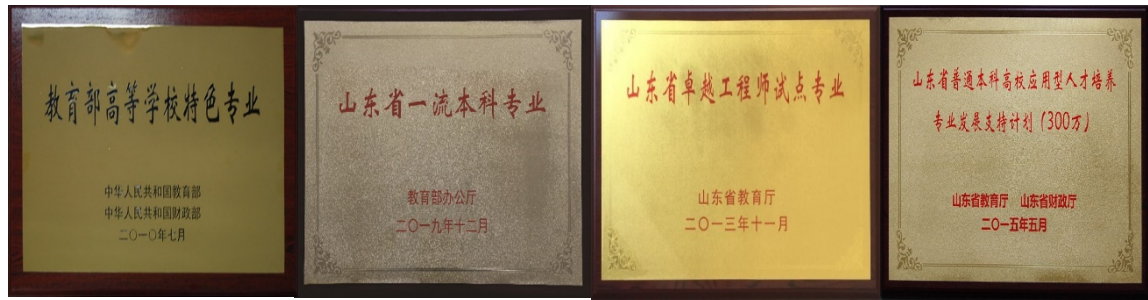 教育部高等学校特色专业
中华人民共和国教育部
中华人民共和国财政部
二〇一〇年七月
山东省一流本科专业
教育部办公厅
二〇一九年十二月
山东省卓越工程师试点专业
山东省教育厅
二〇一三年十一月
山东省普通本科高校应用型人才培养
专业发展支持计划（300万）
山东省教育厅 山东省财政厅
二〇一五年五月